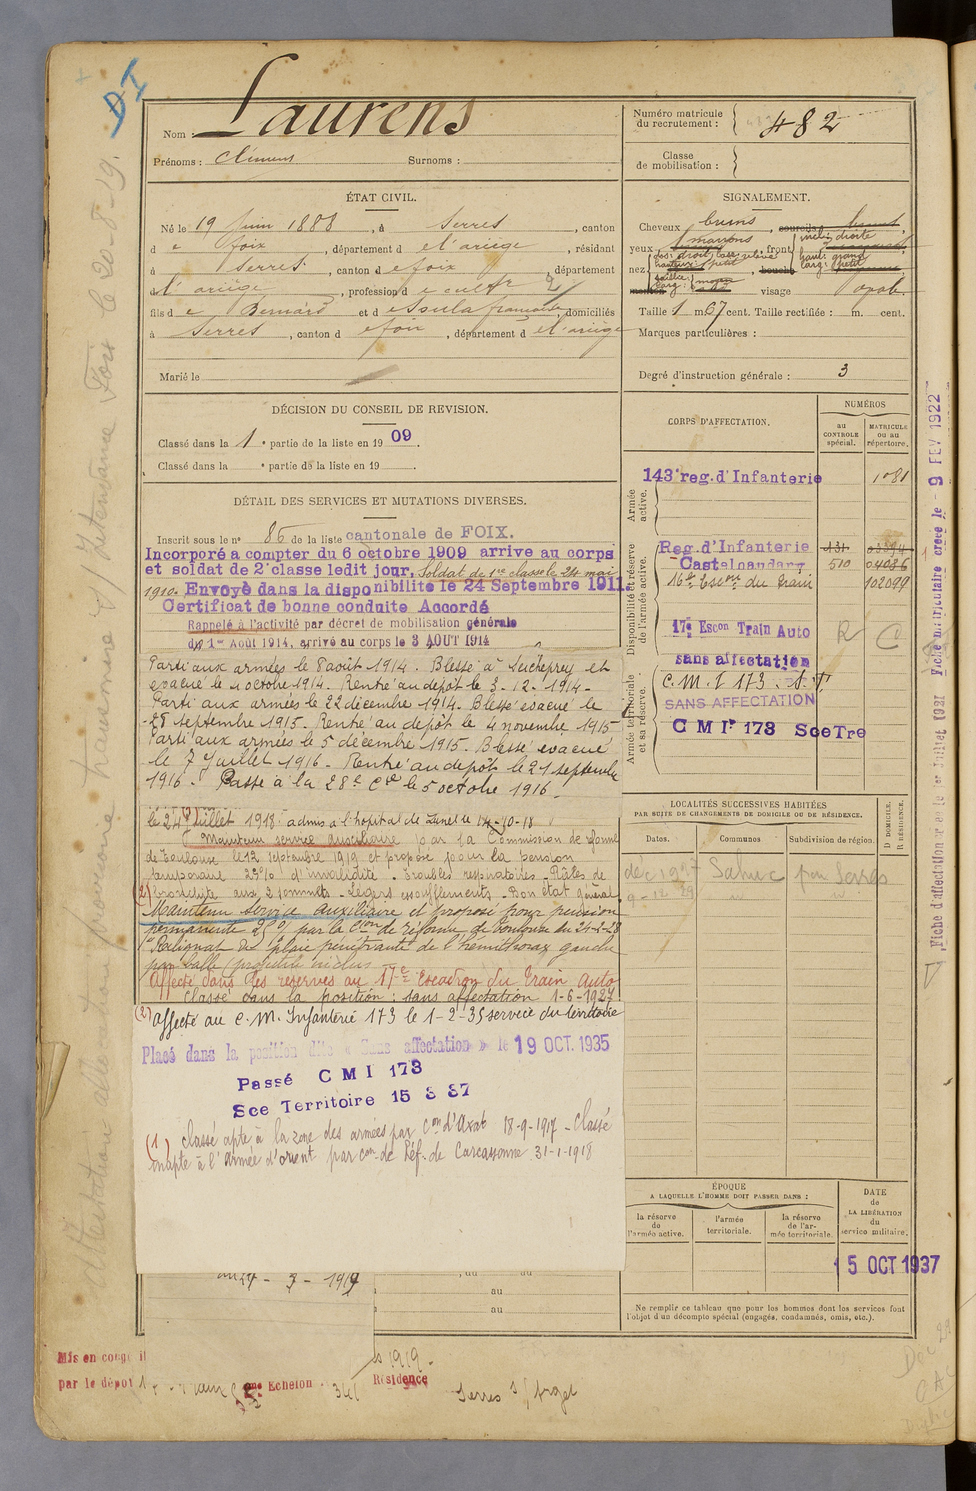 DI
Laurens
Nom :
Prénoms : Clément Surnoms :
Numéro matricule
du recrutement :
482
Classe
de mobilisation :
ÉTAT CIVIL.
Né le 19 Juin 1888, à Serres, canton
de foix, département de l'ariège, résidant
à Serres, canton de foix, département
de l'ariège, profession de cultr
fils de Bernard et de Soula françoise, domiciliés
à Serres, canton de foix, département de l'ariège
Marié le
SIGNALEMENT.
Cheveux bruns, sourcils bruns,
yeux marrons, front incl: droite
haut: grand
larg: petit
nez dos: droit, base relevée
hauteur: petit
saillie:
larg: moyen
bouche
menton visage oval.
Taille 1 m. 67 cent. Taille rectifiée : m. cent.
Marques particulières :
Degré d'instruction générale : 3
DÉCISION DU CONSEIL DE REVISION.
Classé dans la 1e partie de la liste en 1909.
Classé dans la e partie de la liste en 19
DÉTAIL DES SERVICES ET MUTATIONS DIVERSES.
Inscrit sous le n° 86 de la liste cantonale de FOIX.
Incorporé a compter du 6 octobre 1909 arrive au corps
et soldat de 2e classe ledit jour. Soldat de 1re classe le 24 mai
1910. Envoyé dans la disponibilité le 24 Septembre 1911.
Certificat de bonne conduite Accordé
Rappelé à l'activité par décret de mobilisation générale
du 1er Août 1914, arrivé au corps le 3 AOUT 1914
Parti aux armées le 8 août 1914. Blessé à Seicheprey et
évacué le octobre 1914. Rentré au dépôt le 3-12-1914-
Parti aux armées le 22 décembre 1914. Blessé évacué le
28 septembre 1915. Rentré au dépôt le 4 novembre 1915
Parti aux armées le 5 décembre 1915. Blessé évacué
le 7 Juillet 1916. Rentré au dépôt le 21 septembre
1916. Passé à la 28e Cie le 5 octobre 1916.
le 24 Juillet 1918: admis à l'hôpital de Lunel le 14-10-18
Maintenu service auxiliaire par la Commission de réforme
de Toulouse le 12 Septembre 1919 et proposé pour la pension
temporaire 25% d'invalidité. Troubles respiratoires. Râles de
bronchite aux 2 sommets. Légers essoufflements. Bon état général.
(2) Maintenu Service Auxiliaire et proposé pour pension
permanente 25% par la Con de réforme de Toulouse du 24-2-28
1° Reliquat de plaie pénétrante de l'hémithorax gauche
par balle (projectile inclus
Affecté dans les réserves au 17e Escadron du Train Auto
Classé dans la position: sans affectation 1-6-1927
(2) affecté au C.M. Infanterie 173 le 1-2-35 service du territoire
Placé dans la position dite « Sans affectation » le 19 OCT. 1935
Passé C M I 173
Sce Territoire 15 3 37
(1) Classé apte à la zone des armées par Con d'Axat 18-9-1917 - Classé
inapte à l'armée d'orient par con de Réf. de Carcassonne 31-1-1918
CORPS D'AFFECTATION.
NUMÉROS
au
CONTROLE
spécial.
MATRICULE
ou au
répertoire.
Armée
active.
143e reg. d'Infanterie 1081
Disponibilité et réserve
de l'armée active.
Reg. d'Infanterie 131
Castelnaudary 510
16e Escon du Train 102099
17e Escon Train Auto R C
sans affectation
Armée territoriale
et sa réserve.
C.M.I 173. S.T.
SANS AFFECTATION
C M Ir 173 Sce Tre
LOCALITÉS SUCCESSIVES HABITÉES
PAR SUITE DE CHANGEMENTS DE DOMICILE OU DE RÉSIDENCE.
Dates. Communes Subdivision de région. D DOMICILE. R RÉSIDENCE.
dec 1927 par Serres
9-12-29
ÉPOQUE
A LAQUELLE L'HOMME DOIT PASSER DANS :
la réserve
de
l'armée active.
l'armée
territoriale.
la réserve
de l'ar-
mée territoriale.
DATE
de
LA LIBÉRATION
du
service militaire.
15 OCT 1937
Ne remplir ce tableau que pour les hommes dont les services font
l'objet d'un décompte spécial (engagés, condamnés, omis, etc.).
, du au
au
au
Mis en congé il
par le dépôt
Echelon
1919.
Résidence
Serres s/ Arget
Fiche matriculaire créée le - 9 FEV 1922